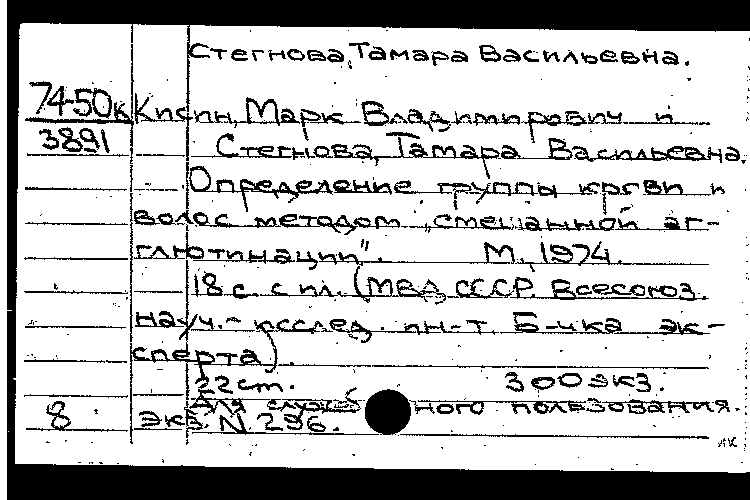 Стегнова, Тамара Васильевна.
74-50к Кисин, Марк Владимирович и
3891 Стегнова, Тамара Васильевна.
Определение группы крови и
волос методом „смешанной аг-
глютинации". М., 1974.
18 с. с ил. (МВД СССР. Всесоюз.
науч.-исслед. ин-т. Б-чка эк-
сперта).
22 см. 300 экз.
Для служебного пользования.
8 экз. N 296.